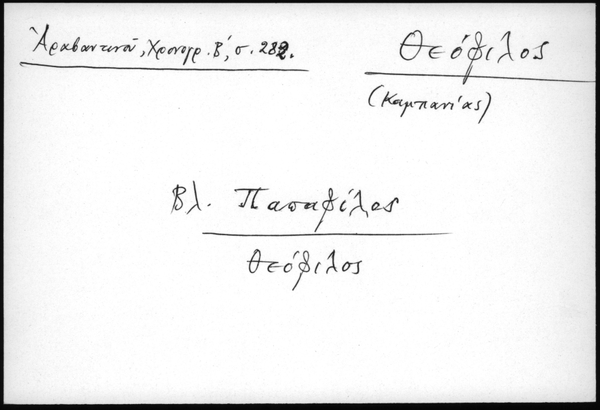 Ἀραβαντινοῦ, Χρονογρ. Β', σ. 282.
Θεόφιλος
(Καμπανίας)
Βλ. Παπαφίλος
Θεόφιλος